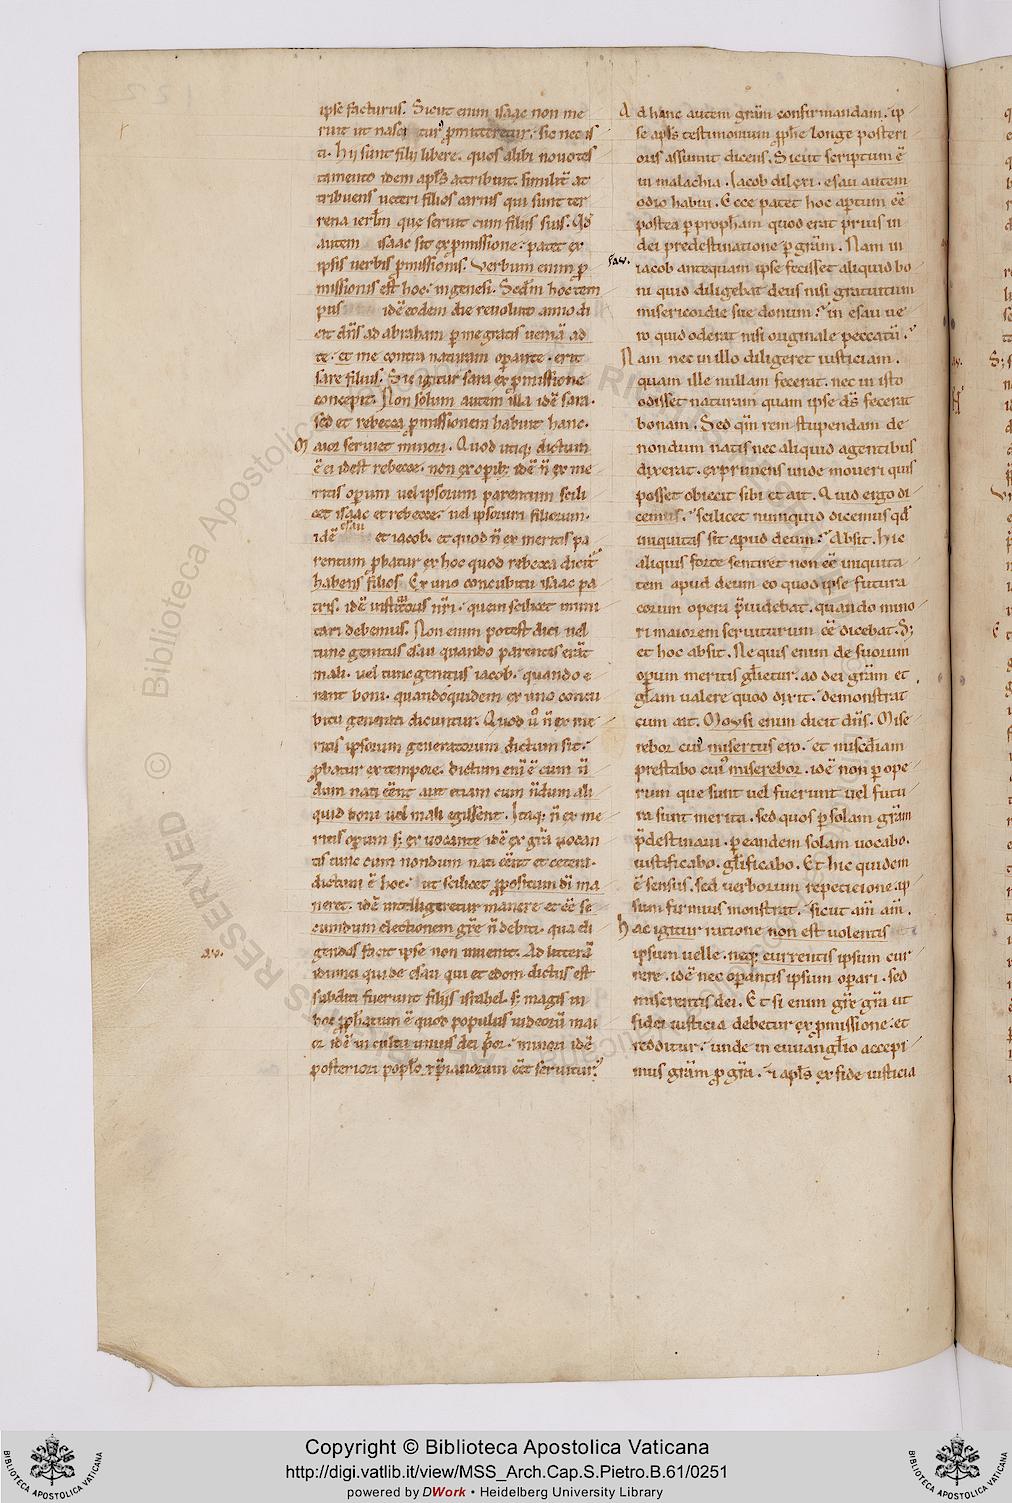 ipse facturus. Sicut enim isaac non me
ruit ut nasci tur᷒ ꝓmitteretur. sic nec is
ti. Hii sunt filii libere. quos alibi nouo tes
tamento idem apl̄s attribuit. similit̄ at
tribuens ueteri filios carnis qui sunt ter
rena ierl̄m que seruit cum filiis suis. Qd̄
autem isaac sit ex ꝓmissione. patet ex
ipsis uerbis ꝓmissionis. Verbum enim ꝓ
missionis est hoc. in genesi. Sed̄m hoc tem
pus idē eodem die reuoluto anno di
cit dn̄s ad abraham ꝑ me gratis ueniā ad
te. et me contra naturam oꝑante. erit
sare filius. Sic igitur sara ex ꝓmissione
concepit. Non solum autem illa idē sara.
sed et rebecca ꝓmissionem habuit hanc.
Maior seruiet minori. Quod utiq; dictum
ē ei idest rebecce. non ex oꝑib; idē n̄ ex me
ritis oꝑum uel ipsorum parentum scili
cet isaac et rebecce. uel ipsorum filiorum.
idē esau et iacob. et quod n̄ ex meritis pa
rentum ꝓbatur ex hoc quod rebecca dicit᷒
habens filios. Ex uno concubitu isaac pa
tris. idē institutoris nr̄i. quem scilicet imi
tari debemus. Non enim potest dici uel
tunc genitus esau quando parentes erāt
mali. uel tunc genitus iacob. quando e
rant boni. quandoquidem ex uno concu
bitu generati dicuntur. Quod u̇ n̄ ex me
ritis ipsorum generatorum dictum sit.
ꝓbatur ex tempore. dictum eni ē cum n̄
dum nati eēnt aut etiam cum n̄dum ali
quid boni uel mali egissent. Itaq; n̄ ex me
ritis oꝑum s; ex uocante idē ex gr̄a uocan
tis tunc cum nondum nati eēnt et cetera.
dictum ē hoc. ut scilicet ꝓpositum di ma
neret. idē intelligeretur manere et eē se
cundum electionem gr̄e n̄ debiti. qua eli
gendos facit ipse non inuenit. Ad litterā
idumei qui de esau qui et edom dictus est
subditi fuerunt filiis israhel. s; magis in
hoc ꝓph̄atum ē quod populus iudeorū mai
or idē in cultu unius dei p̄or. minori idē
posteriori popl̄o xp̄ianorum eēt seruitur᷒.
Ad hanc autem gr̄am confirmandam. ip
se apl̄s testimonium ꝓph̄e longe posteri
oris assumit dicens. Sicut scriptum ē
in malachia. Iacob dilexi. esau autem
odio habui. Ecce patet hoc aꝑtum eē
postea ꝑ proph̄am quod erat prius in
dei predestinatione ꝑ gr̄am. Nam in
iacob antequam ipse fecisset aliquid bo
ni quid diligebat deus nisi gratuitum
misericordie sue donum. in esau ue
ro quid oderat nisi originale peccatū.
Nam nec in illo diligeret iusticiam.
quam ille nullam fecerat. nec in isto
odisset naturam quam ipse ds̄ fecerat
bonam. Sed qm̄ rem stupendam de
nondum natis nec aliquid agentibus
dixerat. exprimens unde moueri quis
posset obiecit sibi et ait. Quid ergo di
cemus. scilicet numquid dicemus qd̄
iniquitas sit apud deum. Absit. hic
aliquis forte sentiret non eē iniquita
tem apud deum eo quod ipse futura
eorum opera p̄uidebat. quando mino
ri maiorem seruiturum eē dicebat. S;
et hoc absit. Ne quis enim de suorum
oꝑum meritis gl̄ietur. ad dei gr̄am et
gl̄am ualere quod dixit. demonstrat
cum ait. Moysi enim dicit dn̄s. Mise
rebor cui᷒ misertus ero. et misc̄diam
prestabo cui᷒ miserebor. idē non ꝑ ope
rum que sunt uel fuerunt uel futu
ra sunt merita. sed quos ꝑ solam gr̄am
p̄destinaui. ꝑ eandem solam uocabo.
iustificabo. gl̄ificabo. Et hic quidem
ē sensus. sed uerborum repeticione. ip
sum firmius monstrat. sicut am̄ am̄.
Hac igitur ratione non est uolentis
ipsum uelle. neq; currentis ipsum cur
rere. idē nec oꝑantis ipsum oꝑari. sed
miserentis dei. Et si enim gr̄e gr̄a ut
fidei iusticia debetur ex ꝓmissione. et
redditur. unde in euuangl̄io accepi
mus gr̄am ꝓ gr̄a. ⁊ apl̄s ex fide iusticia
aw.
Copyright © Biblioteca Apostolica Vaticana
http://digi.vatlib.it/view/MSS_Arch.Cap.S.Pietro.B.61/0251
powered by DWork • Heidelberg University Library
BIBLIOTECA APOSTOLICA VATICANA
BIBLIOTECA APOSTOLICA VATICANA